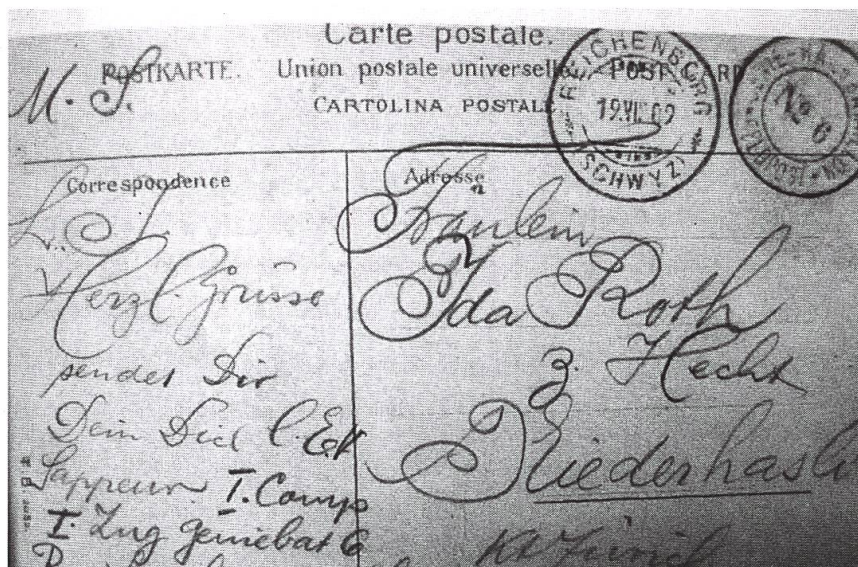 Carte postale.
POSTKARTE. Union postale universelle. POST
CARTOLINA POSTALE
M. S.
REICHENBURG
19.VI.09
(SCHWYZ)
No 6
Correspondence
L. I.
Herzl. Grüsse
sendet Dir
Dein Dich l. E.K
Sappeur I. Comp
I. Zug Geniebat 6
Adresse
Fräulein
Ida Roth
z. Hecht
Niederhasli
Kt Zürich